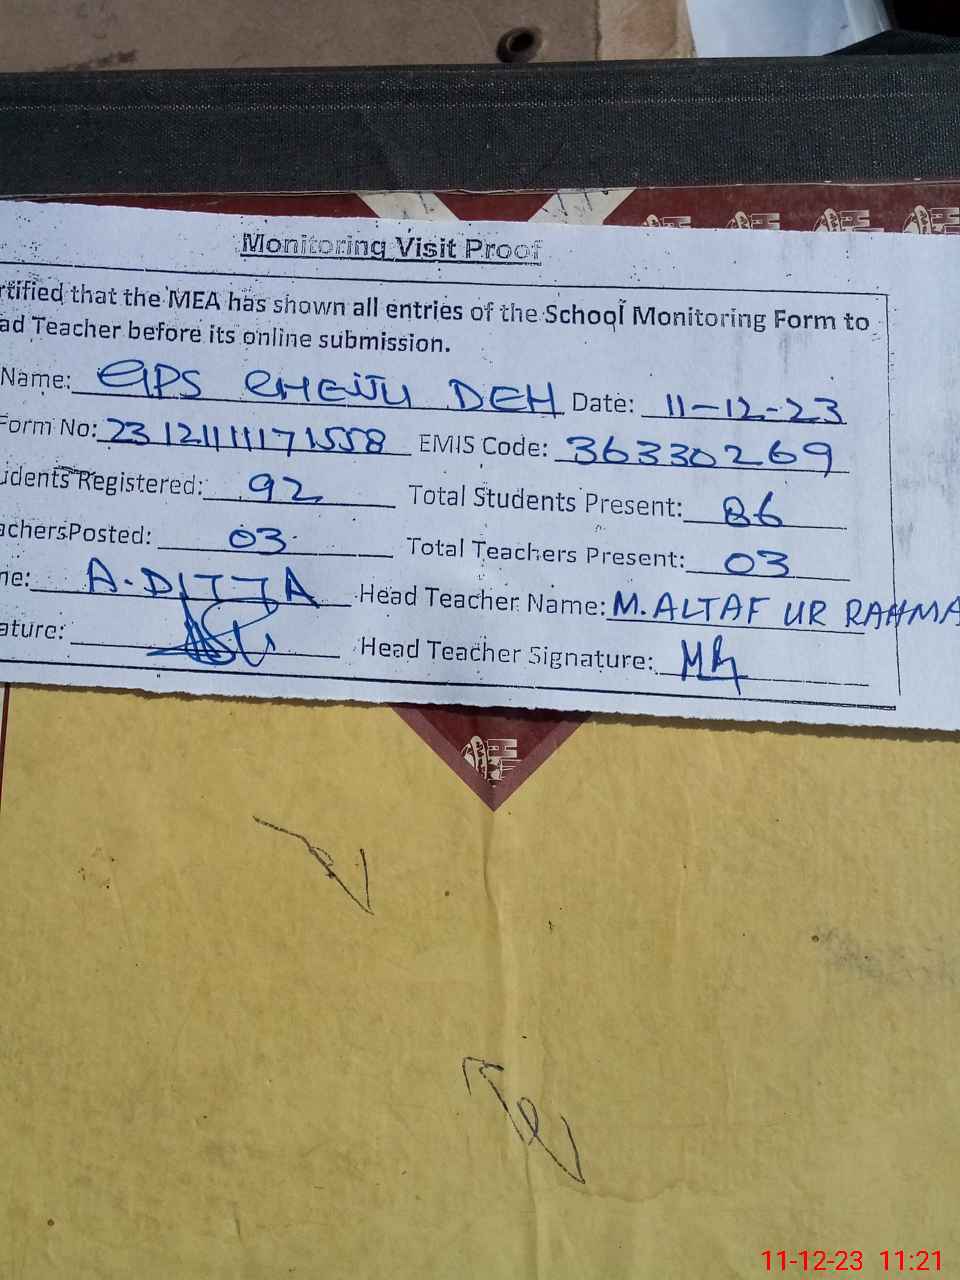 Monitoring Visit Proof
rtified that the MEA has shown all entries of the School Monitoring Form to
ad Teacher before its online submission.
Name: GPS CHEJU DEH Date: 11-12-23
Form No: 231211111171558 EMIS Code: 36330269
udents Registered: 92 Total Students Present: 86
achersPosted: 03 Total Teachers Present: 03
ne: A.DITTA Head Teacher Name: M.ALTAF UR RAHMA
ature: Head Teacher Signature:
11-12-23 11:21